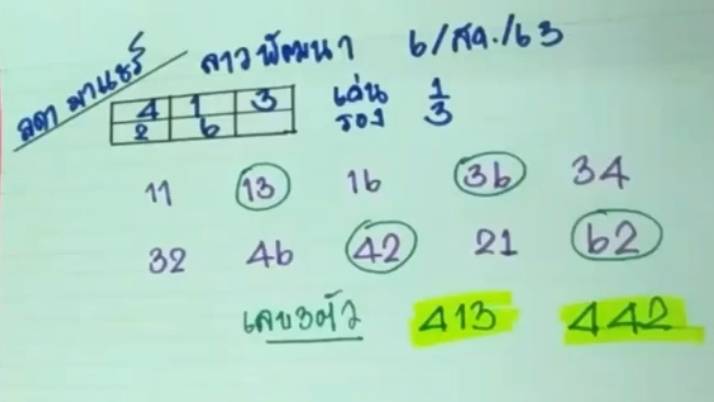 ลดา มาแชร์ ลาวพัฒนา 6/สค./63
4 1 3 เด่น 1
2 6 รอง 3
11 13 16 36 34
32 46 42 21 62
เลข3ตัว 413 442